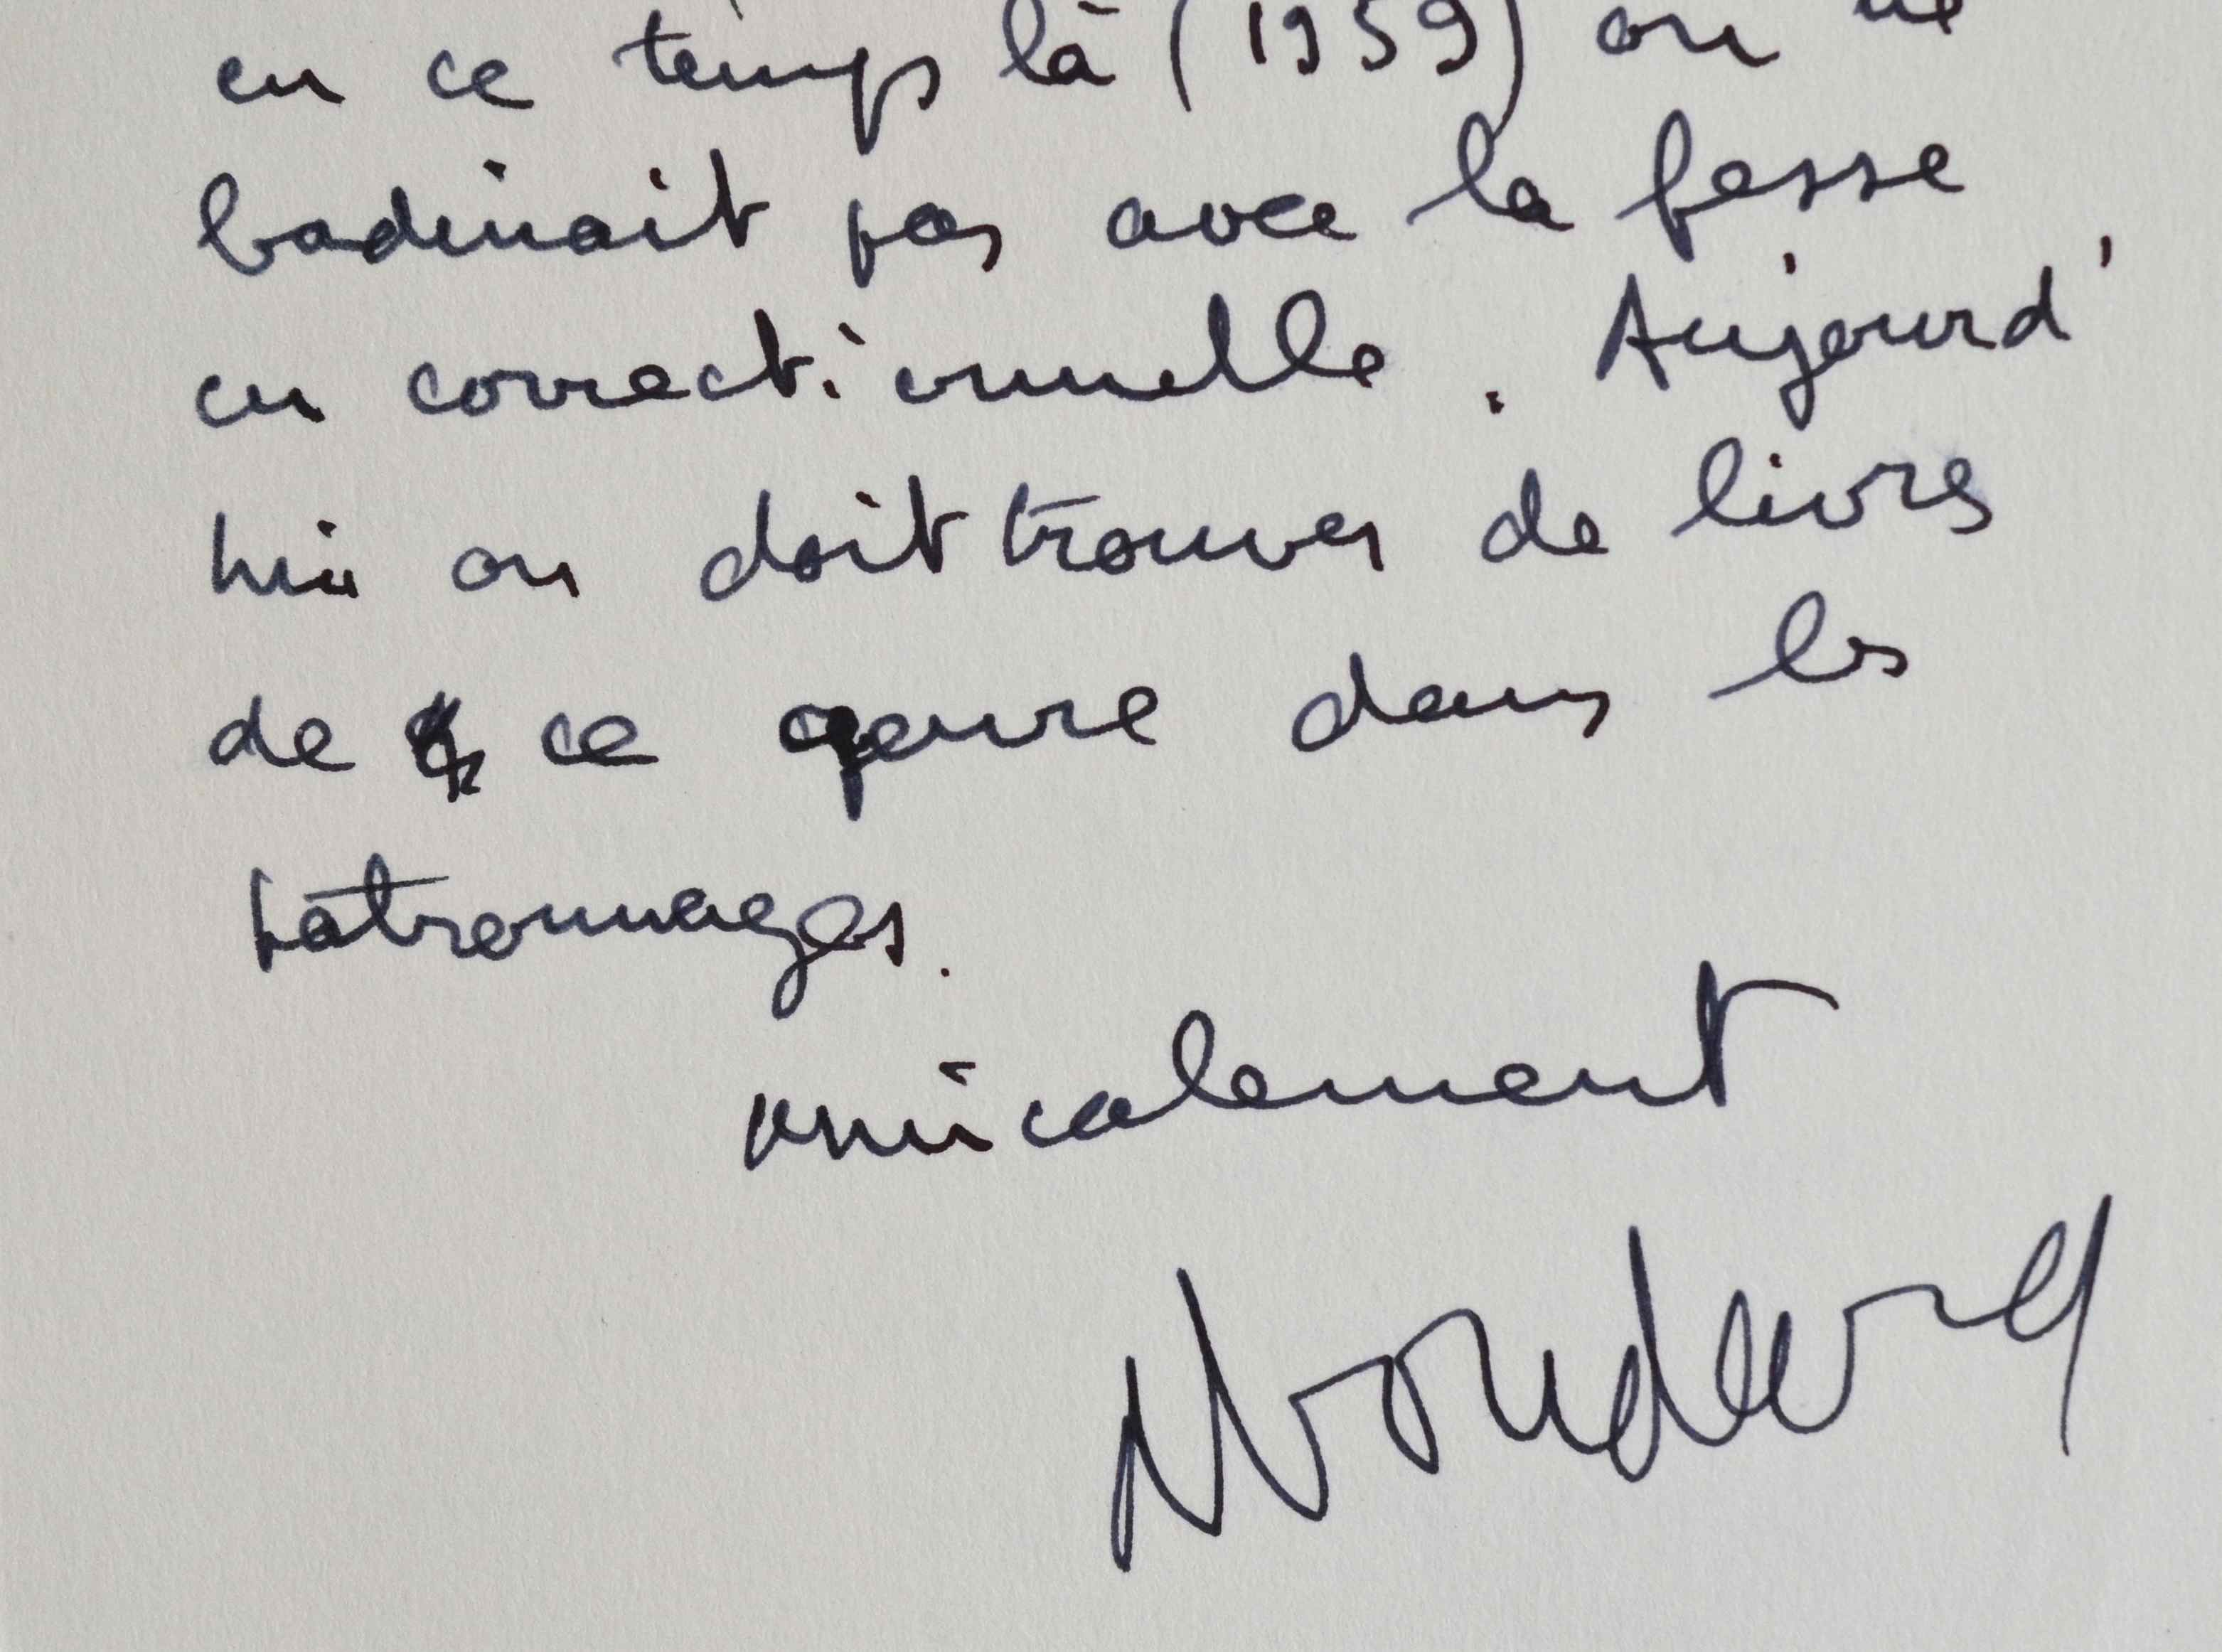 en ce temps là (1959) on ne
badinait pas avec la fesse
en correctionnelle. Aujourd'
hui on doit trouver de livres
de ce genre dans les
patronnages.
amicalement